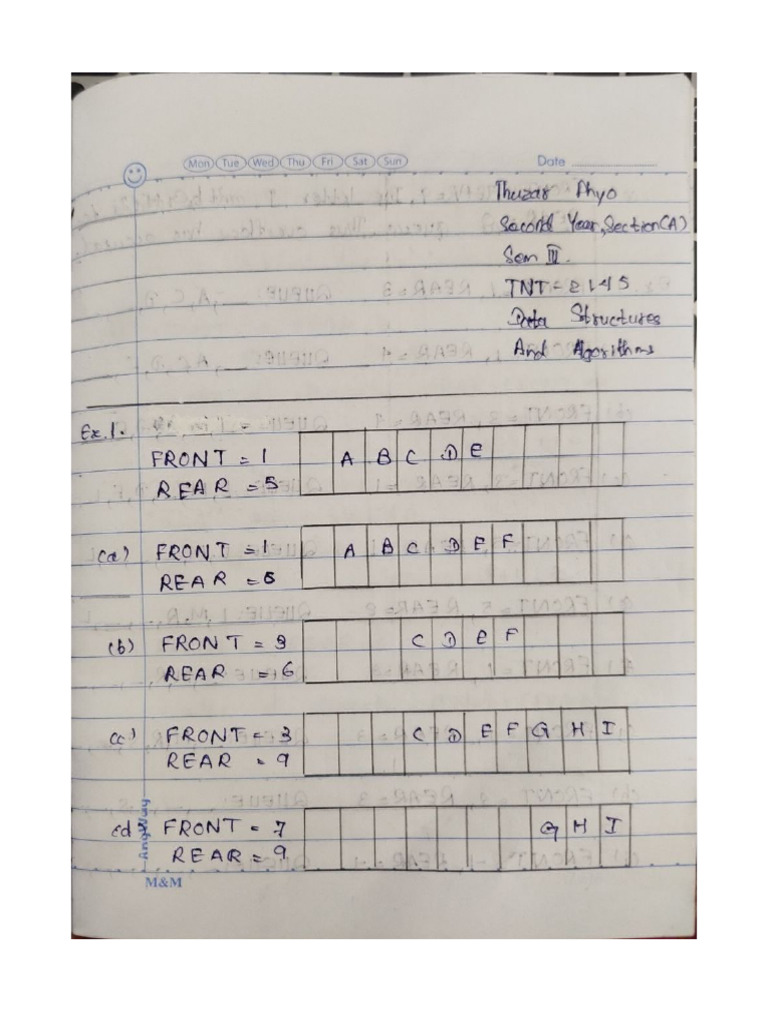 Mon Tue Wed Thu Fri Sat Sun Date
Thuzar Phyo
Second Year, Section(A)
Sem III.
TNT-2145
Data Structures
And Algorithms
Ex.1.
FRONT = 1
A B C D E
REAR = 5
(a) FRONT = 1
A B C D E F
REAR = 6
(b) FRONT = 3
C D E F
REAR = 6
(c) FRONT = 3
C D E F G H I
REAR = 9
(d) FRONT = 7
G H I
REAR = 9
M&M